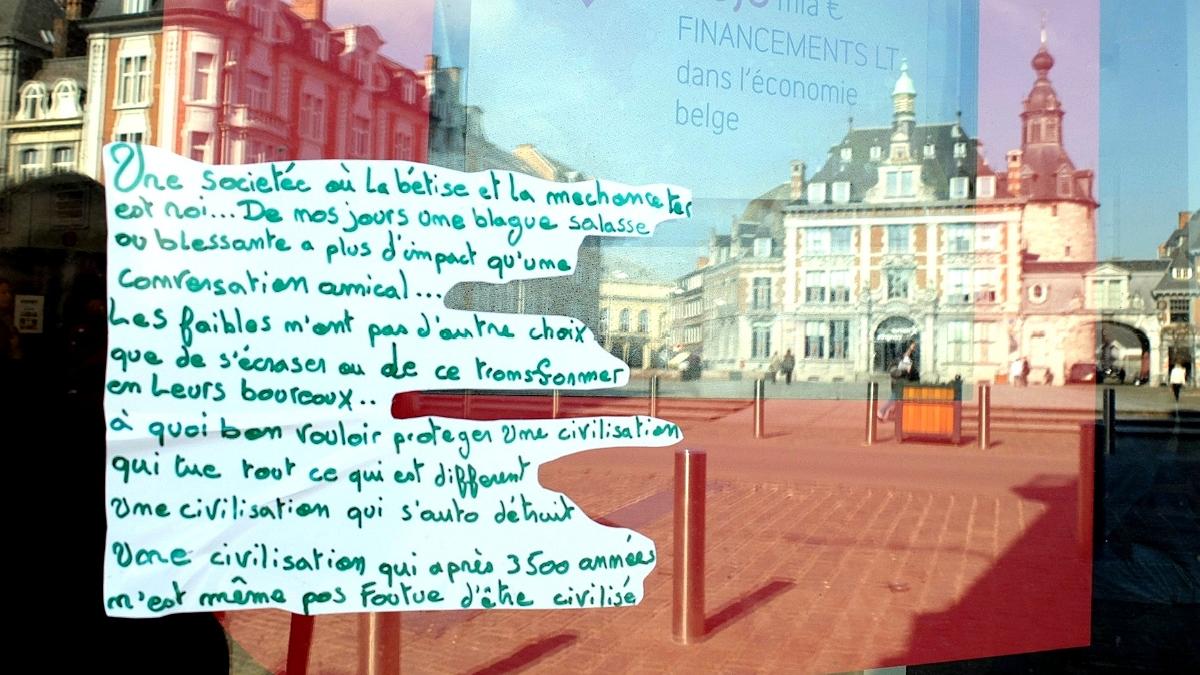 mia €
FINANCEMENTS LT
dans l'économie
belge
Une societée où La bétise et la mechanceter
est roi... De nos jours une blague salasse
ou blessante a plus d'impact qu'une
conversation amical...
Les faibles n'ont pas d'autre choix
que de s'écraser ou de ce transformer
en Leurs boureaux..
à quoi bon vouloir proteger Une civilisation
qui tue tout ce qui est different
Une civilisation qui s'auto détruit
Une civilisation qui après 3500 années
n'est même pas Foutue d'être civilisé